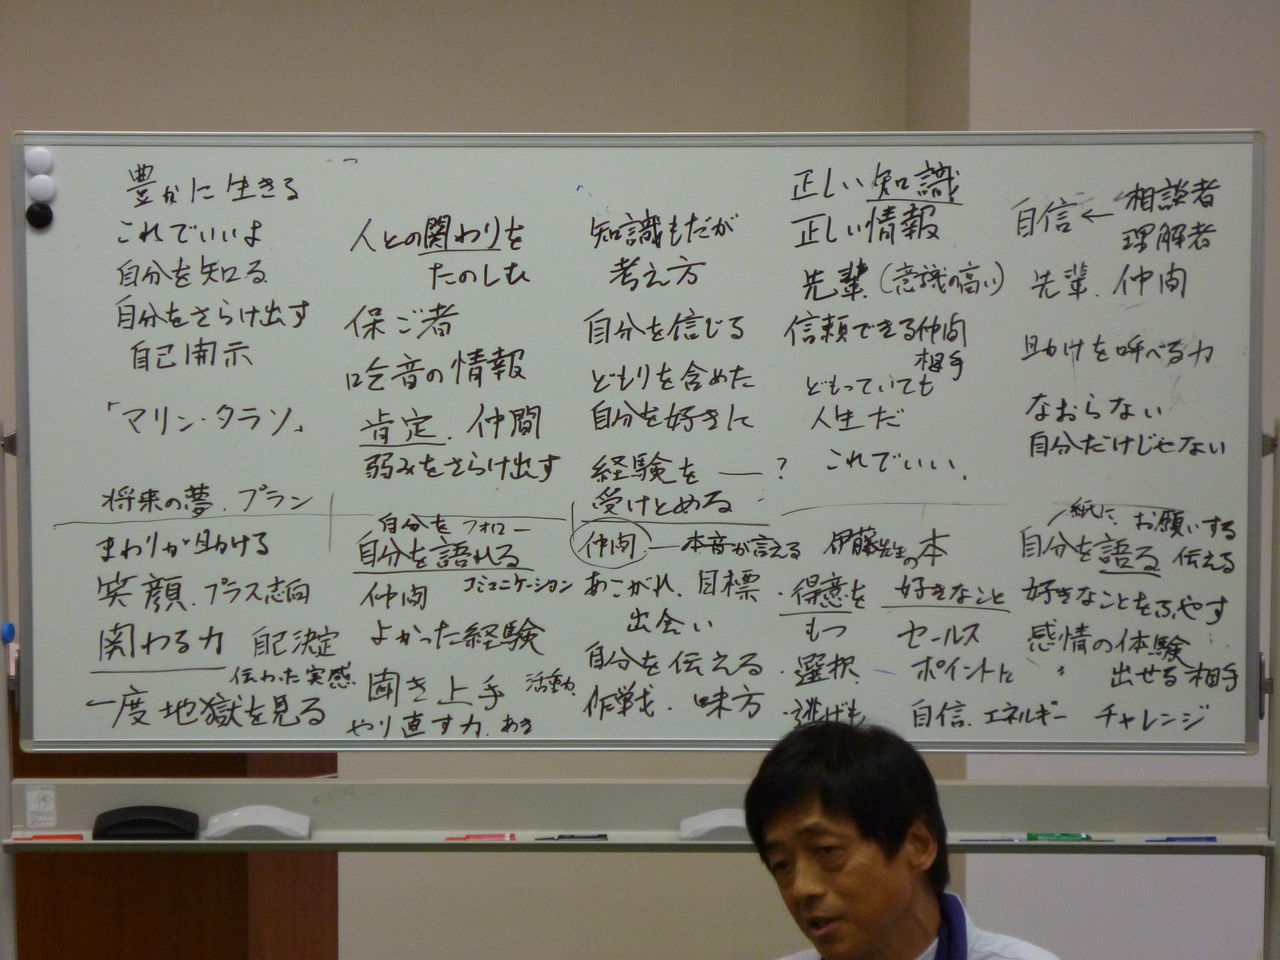 豊かに生きる
これでいいよ
自分を知る
自分をさらけ出す
自己開示
「マリン・タラソ」
将来の夢.プラン
人との関わりを
たのしむ
保ご者
吃音の情報
肯定.仲間
弱みをさらけ出す
知識もだが
考え方
自分を信じる
どもりを含めた
自分を好きに
経験を ― ?
受けとめる
正しい知識
正しい情報
先輩(意識の高い)
信頼できる仲間
相手
どもっていても
人生だ
これでいい、
自信←相談者
理解者
先輩.仲間
助けを呼べる力
なおらない
自分だけじゃない
まわりが助ける
笑顔.プラス志向
関わる力 自己決定
伝わった実感
一度地獄を見る
自分をフォロー
自分を語れる
仲間 コミュニケーション
よかった経験
聞き上手 活動
やり直す力.
仲間―本音が言える
あこがれ.目標
出会い
自分を伝える
作戦.味方
伊藤先生の本
・得意を
もつ
・選択
・逃げも
好きなこと
セールス
ポイントに
自信.エネルギー
紙に、お願いする
自分を語る 伝える
好きなことをふやす
感情の体験
出せる相手
チャレンジ